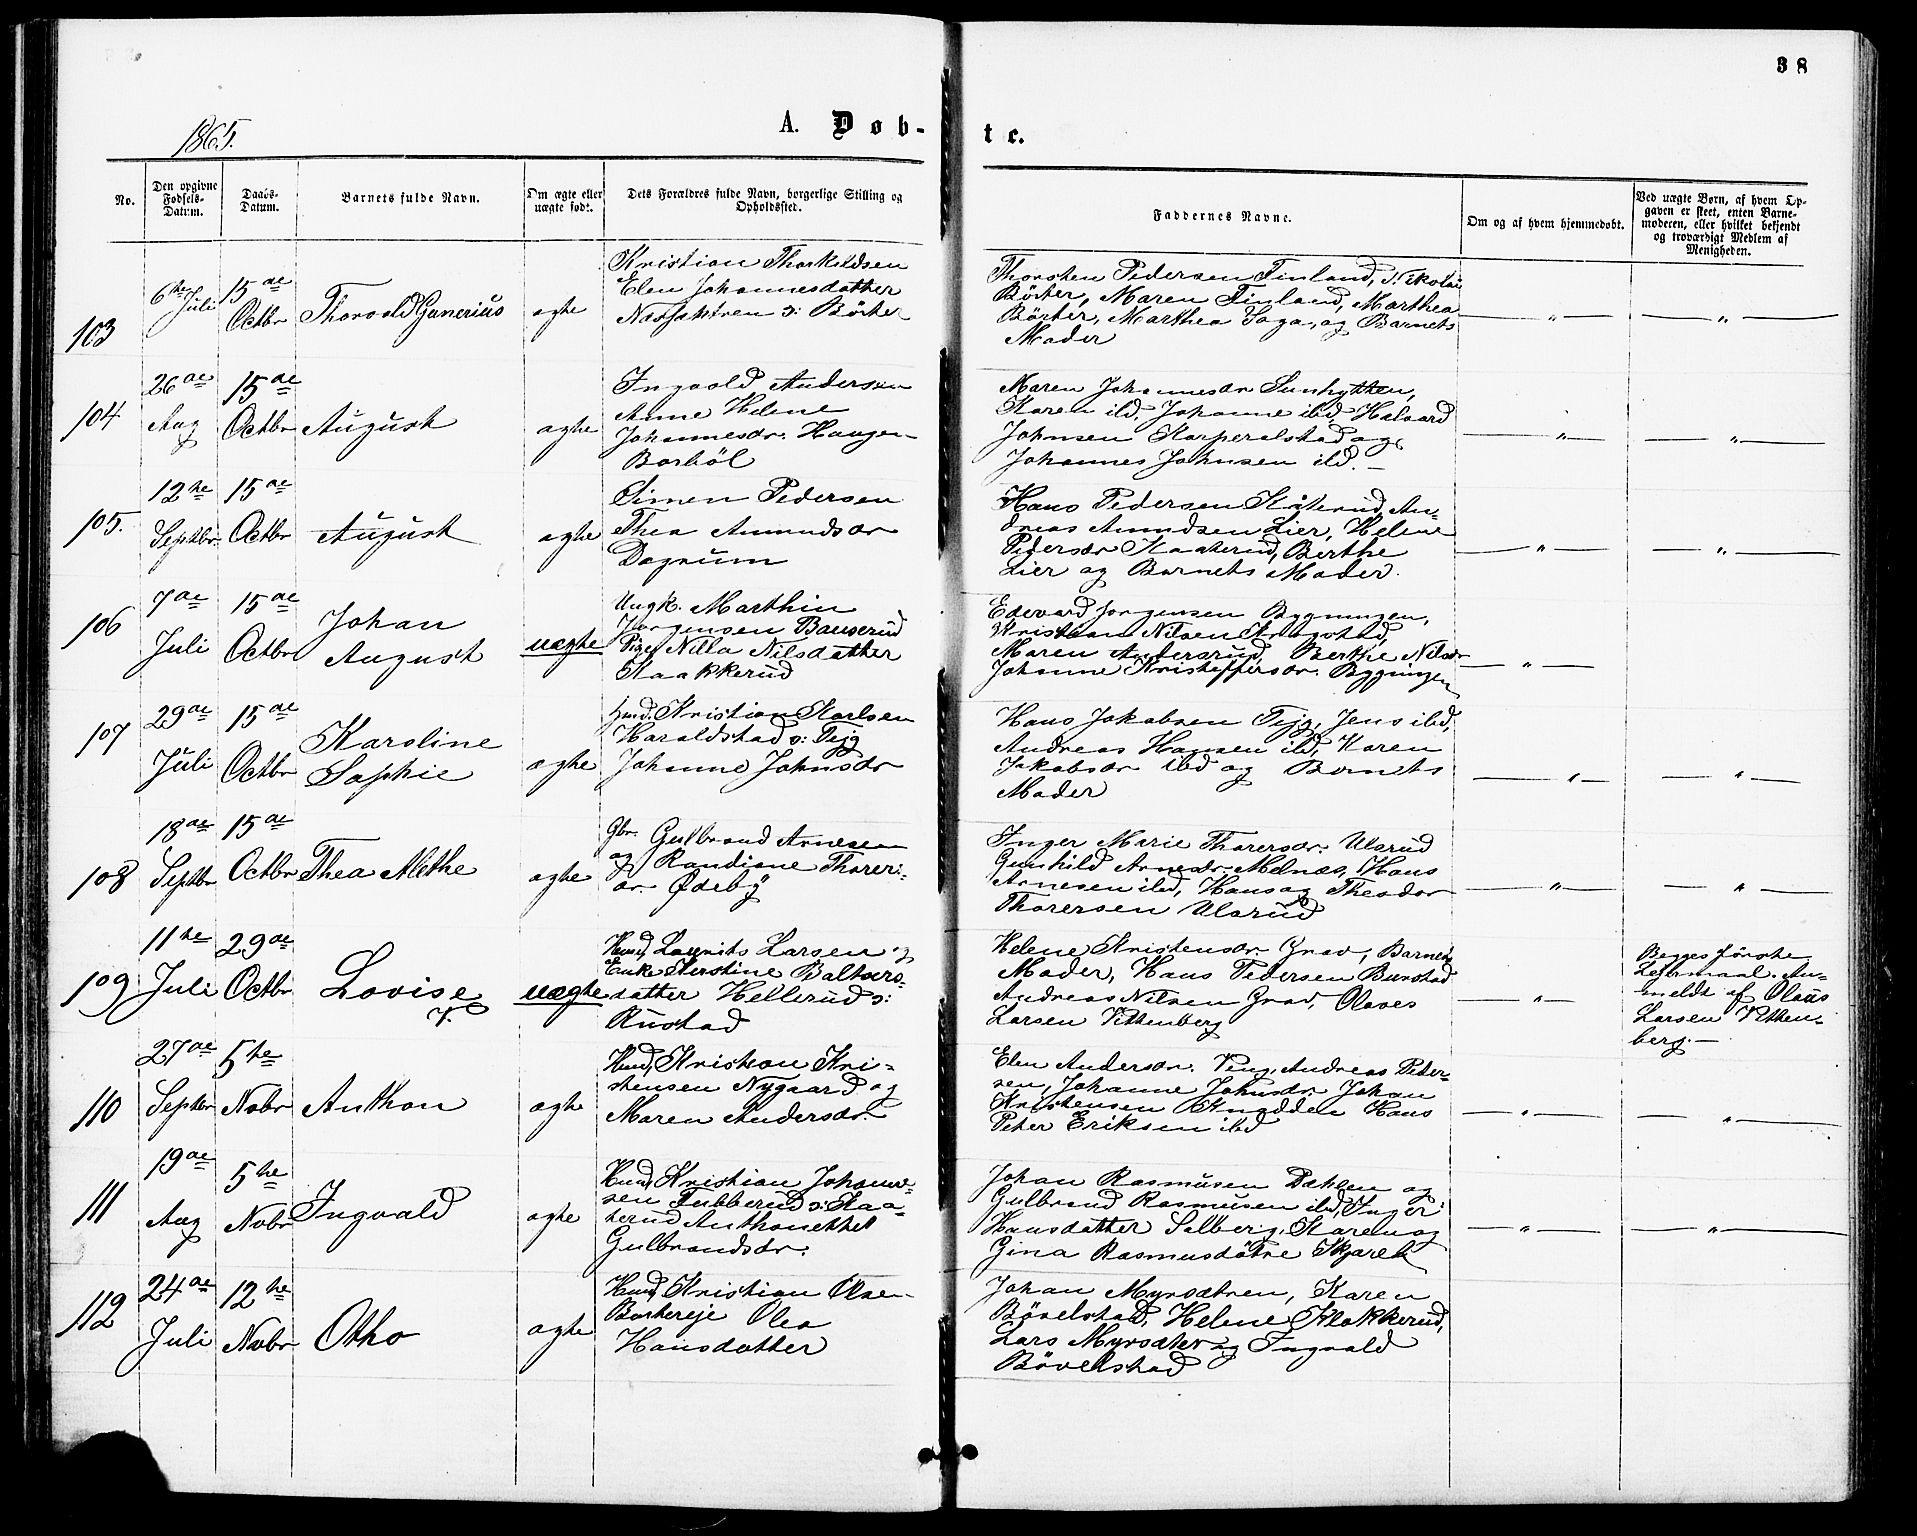 38
1865.
A. Døb-
te.
No.
Den opgivne
Fødsels-
Datum.
Daabs-
Datum.
Barnets fulde Navn.
Om ægte eller
uægte født.
Dets Forældres fulde Navn, borgerlige Stilling og
Opholdssted.
Faddernes Navne.
Om og af hvem hjemmedøbt.
Ved uægte Børn, af hvem Op-
gaven er skeet, enten Barne-
moderen, eller hvilket bekjendt
og troværdigt Medlem af
Menigheden.
103
6te Juli
15de Octbr
Thorvald Gunerius
ægte
Kristian Thorkildsen
Elen Johannesdatter
Børter
Thorsten Pedersen Finland, Nikolai
Børter, Maren Finland, Marthea
Børter, Marthea Saga, og Barnets
Moder
104
26de Aug
15de Octbr
August
ægte
Ingvald Andersen
Anne Helene
Johannesdr. Haugen
Borböl
Maren Johannesdr
Karen ibd, Johanne ibd, Halvard
Johnsen Korperalstad og
Johannes Johnsen ibd.
105.
12te Septbr.
15de Octbr
August
ægte
Simen Pedersen
Thea Amundsdr
Dagrum
Hans Pedersen Kåterud, An-
dreas Amundsen Lier, Helene
Pedersdr Kaaterud, Berthe
Lier og Barnets Moder.
106
7de Juli
15de Octbr
Johan
August
uægte
Ungk. Marthin
Jørgensen Bauserud
Pige Nilla Nilsdatter
Kaakkerud
Edevard Jørgensen Bygningen,
Kristian Nilsen Krogstad,
Maren Berthe Nilsdr
Johanne Kristoffersdr. Bygningen
107
29de Juli
15de Octbr
Karoline
Sophie
ægte
Hmd. Kristian Karlsen
Haraldstad v: Tejg
Johanne Johnsdr
Hans Jakobsen Tejg, Jens ibd,
Andreas Hansen ibd, Karen
Jakobsdr ibd og Barnets
Moder
108
18de Septbr
15de Octbr
Thea Alethe
ægte
Gbr. Gulbrand Arnesen
og Randiane Thorers-
dr. Ødeby
Inger Marie Thorersdr. Ulsrud
Gunhild Arnesdr, Melnæs, Hans
Arnesen ibd, Hans og Theodor
Thorersen Ulsrud
109
11te Juli
29de Octbr
Lovise
V.
uægte
Hmd, Laurits Larsen og
Enke Kerstine Baltsers-
datter Hellerud v:
Rustad
Helene Kristensdr. Grav, Barnets
Moder, Hans Pedersen Bunstad
Andreas Nilsen Grav, Olaves
Larsen Vittenberg
Begges første
Leiermaal. An-
meldt af Olaus
Larsen Vitten-
berg.
110
27de Septbr
5te Nobr
Anthon
ægte
Hmd, Kristian Kri-
stensen Nygaard og
Maren Andersdr.
Elen Andersdr. Ping, Andreas Peder-
sen, Johanne Johnsdr. Johan
Kristensen Knodden Hans
Peter Eriksen ibd
111
19de Aug
5te Nobr
Ingvald
ægte
Hmd, Kristian Johanne-
sen Tubberud v: Kaa-
terud Anthonette
Gulbrandsdr.
Johan Rasmusen Dahlen og
Gulbrand Rasmusen ibd, Inger
Hansdatter Solberg, Karen og
Gina Rasmusdøtre
112
24de Juli
12te Nobr
Otho
ægte
Hmd, Kristian Olsen
Borkereje Olea
Hansdatter
Johan Myrsætren, Karen
Bövelstad, Helene Klokkerud,
Lars Myrsæter og Ingvald
Bövelstad